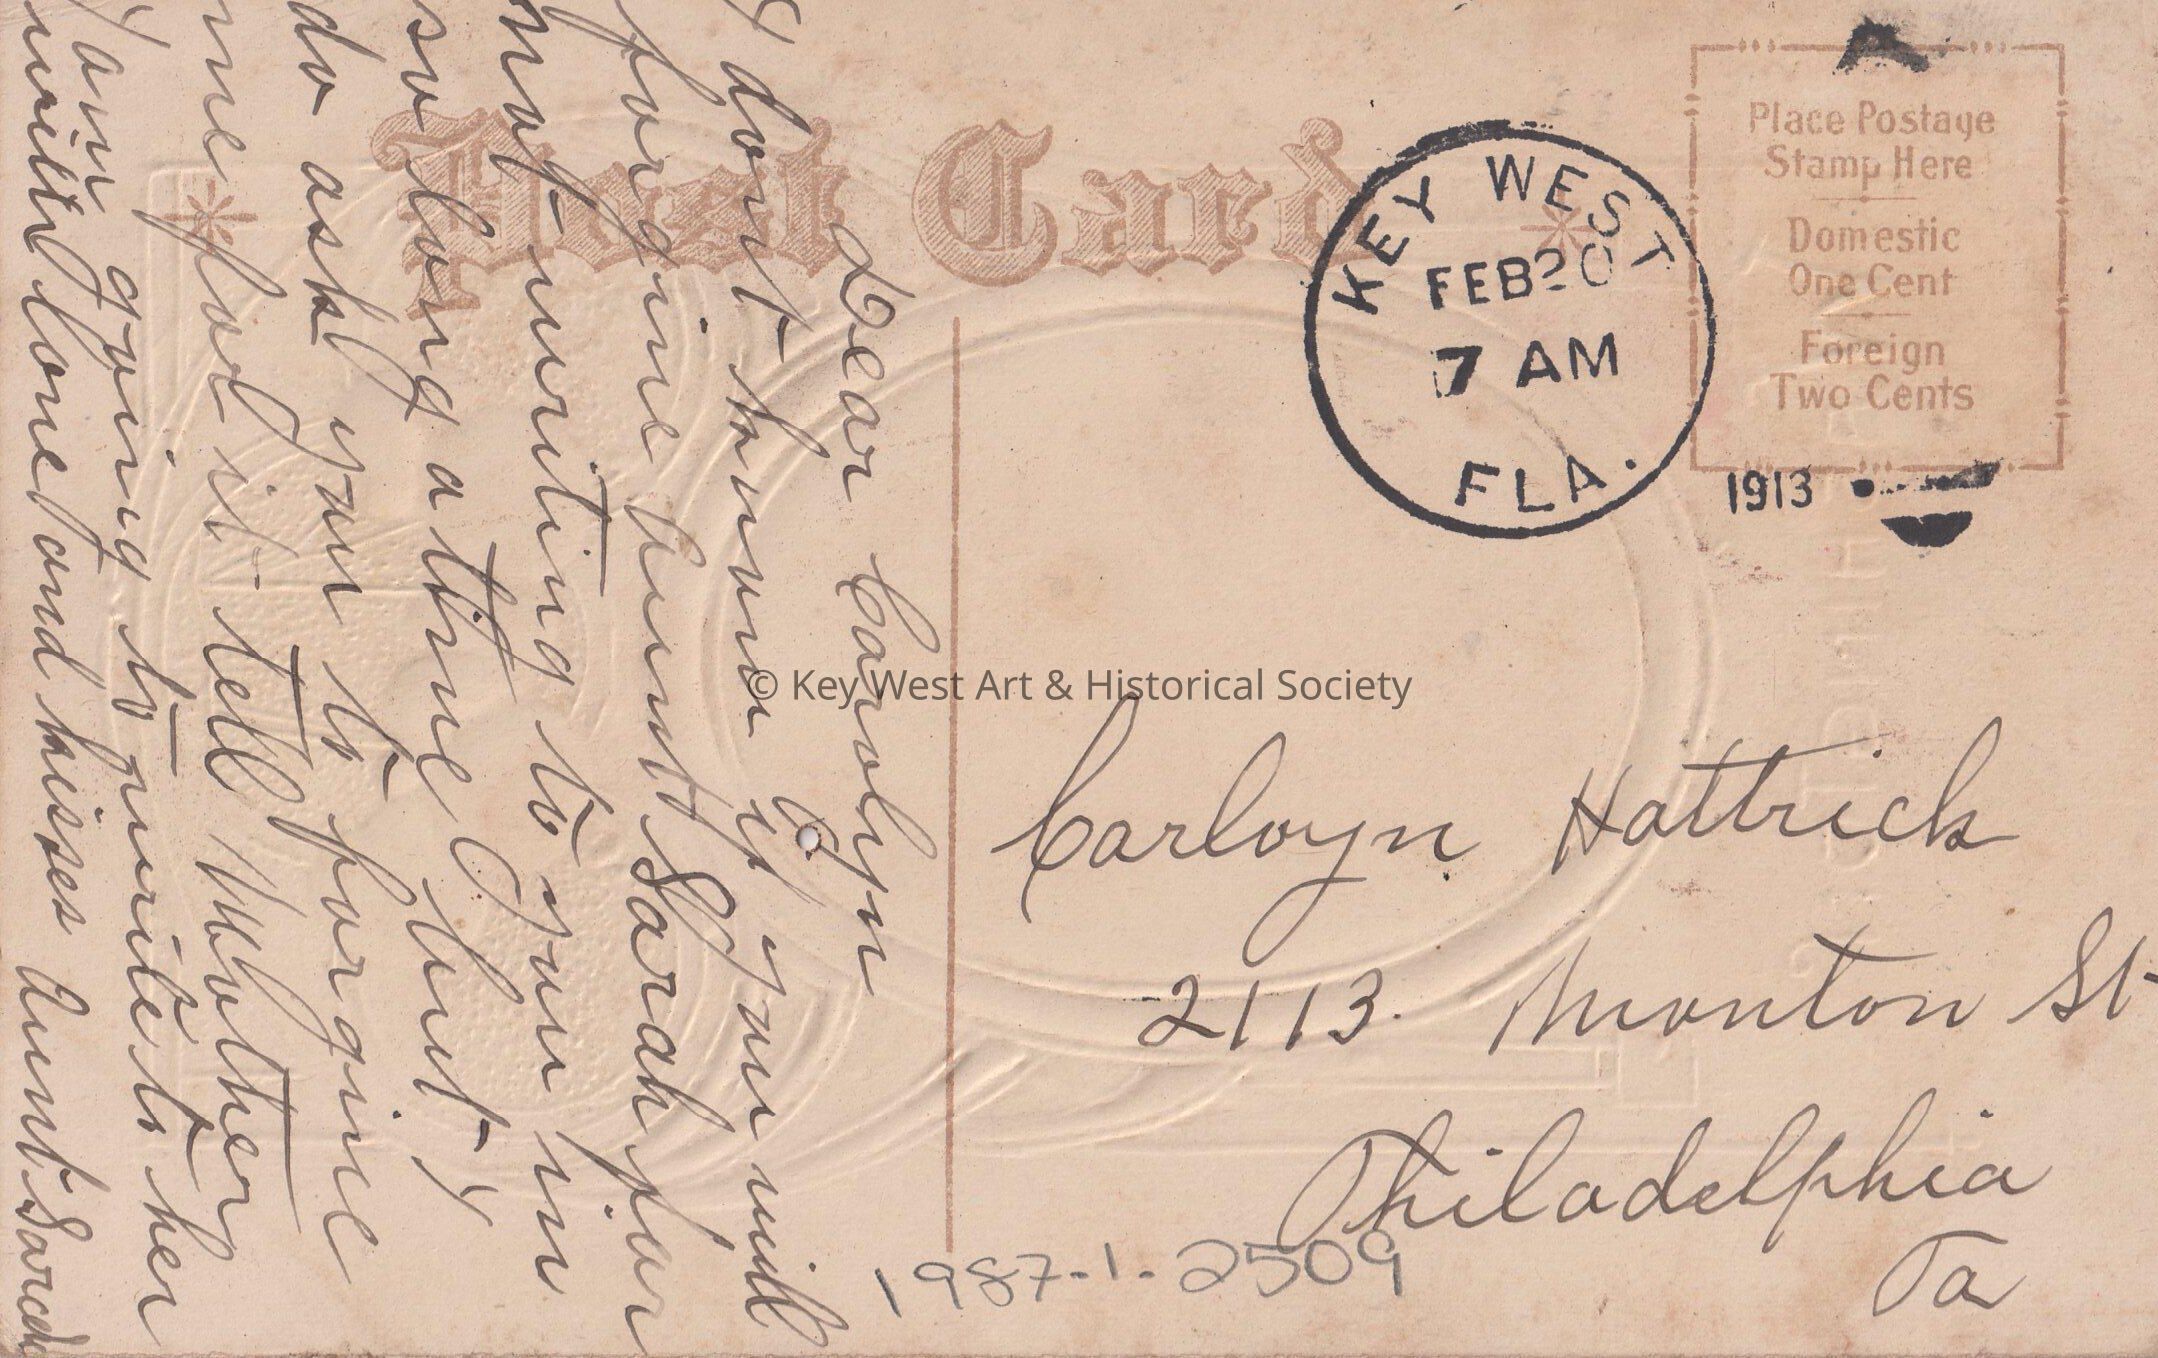 Post Card
Place Postage
Stamp Here
Domestic
One Cent
Foreign
Two Cents
KEY WEST
FEB 20
7 AM
FLA.
1913
Dear Carolyn
I dont know if you will
forgive Aunt Sarah for
not writing to you in
so long a time but I
do ask you to forgive
me for it tell Mother
I am going to write to her
with love and kisses Aunt Sarah
© Key West Art & Historical Society
Carloyn Hattrick
2113. St
Philadelphia
Pa
1987.1.2509